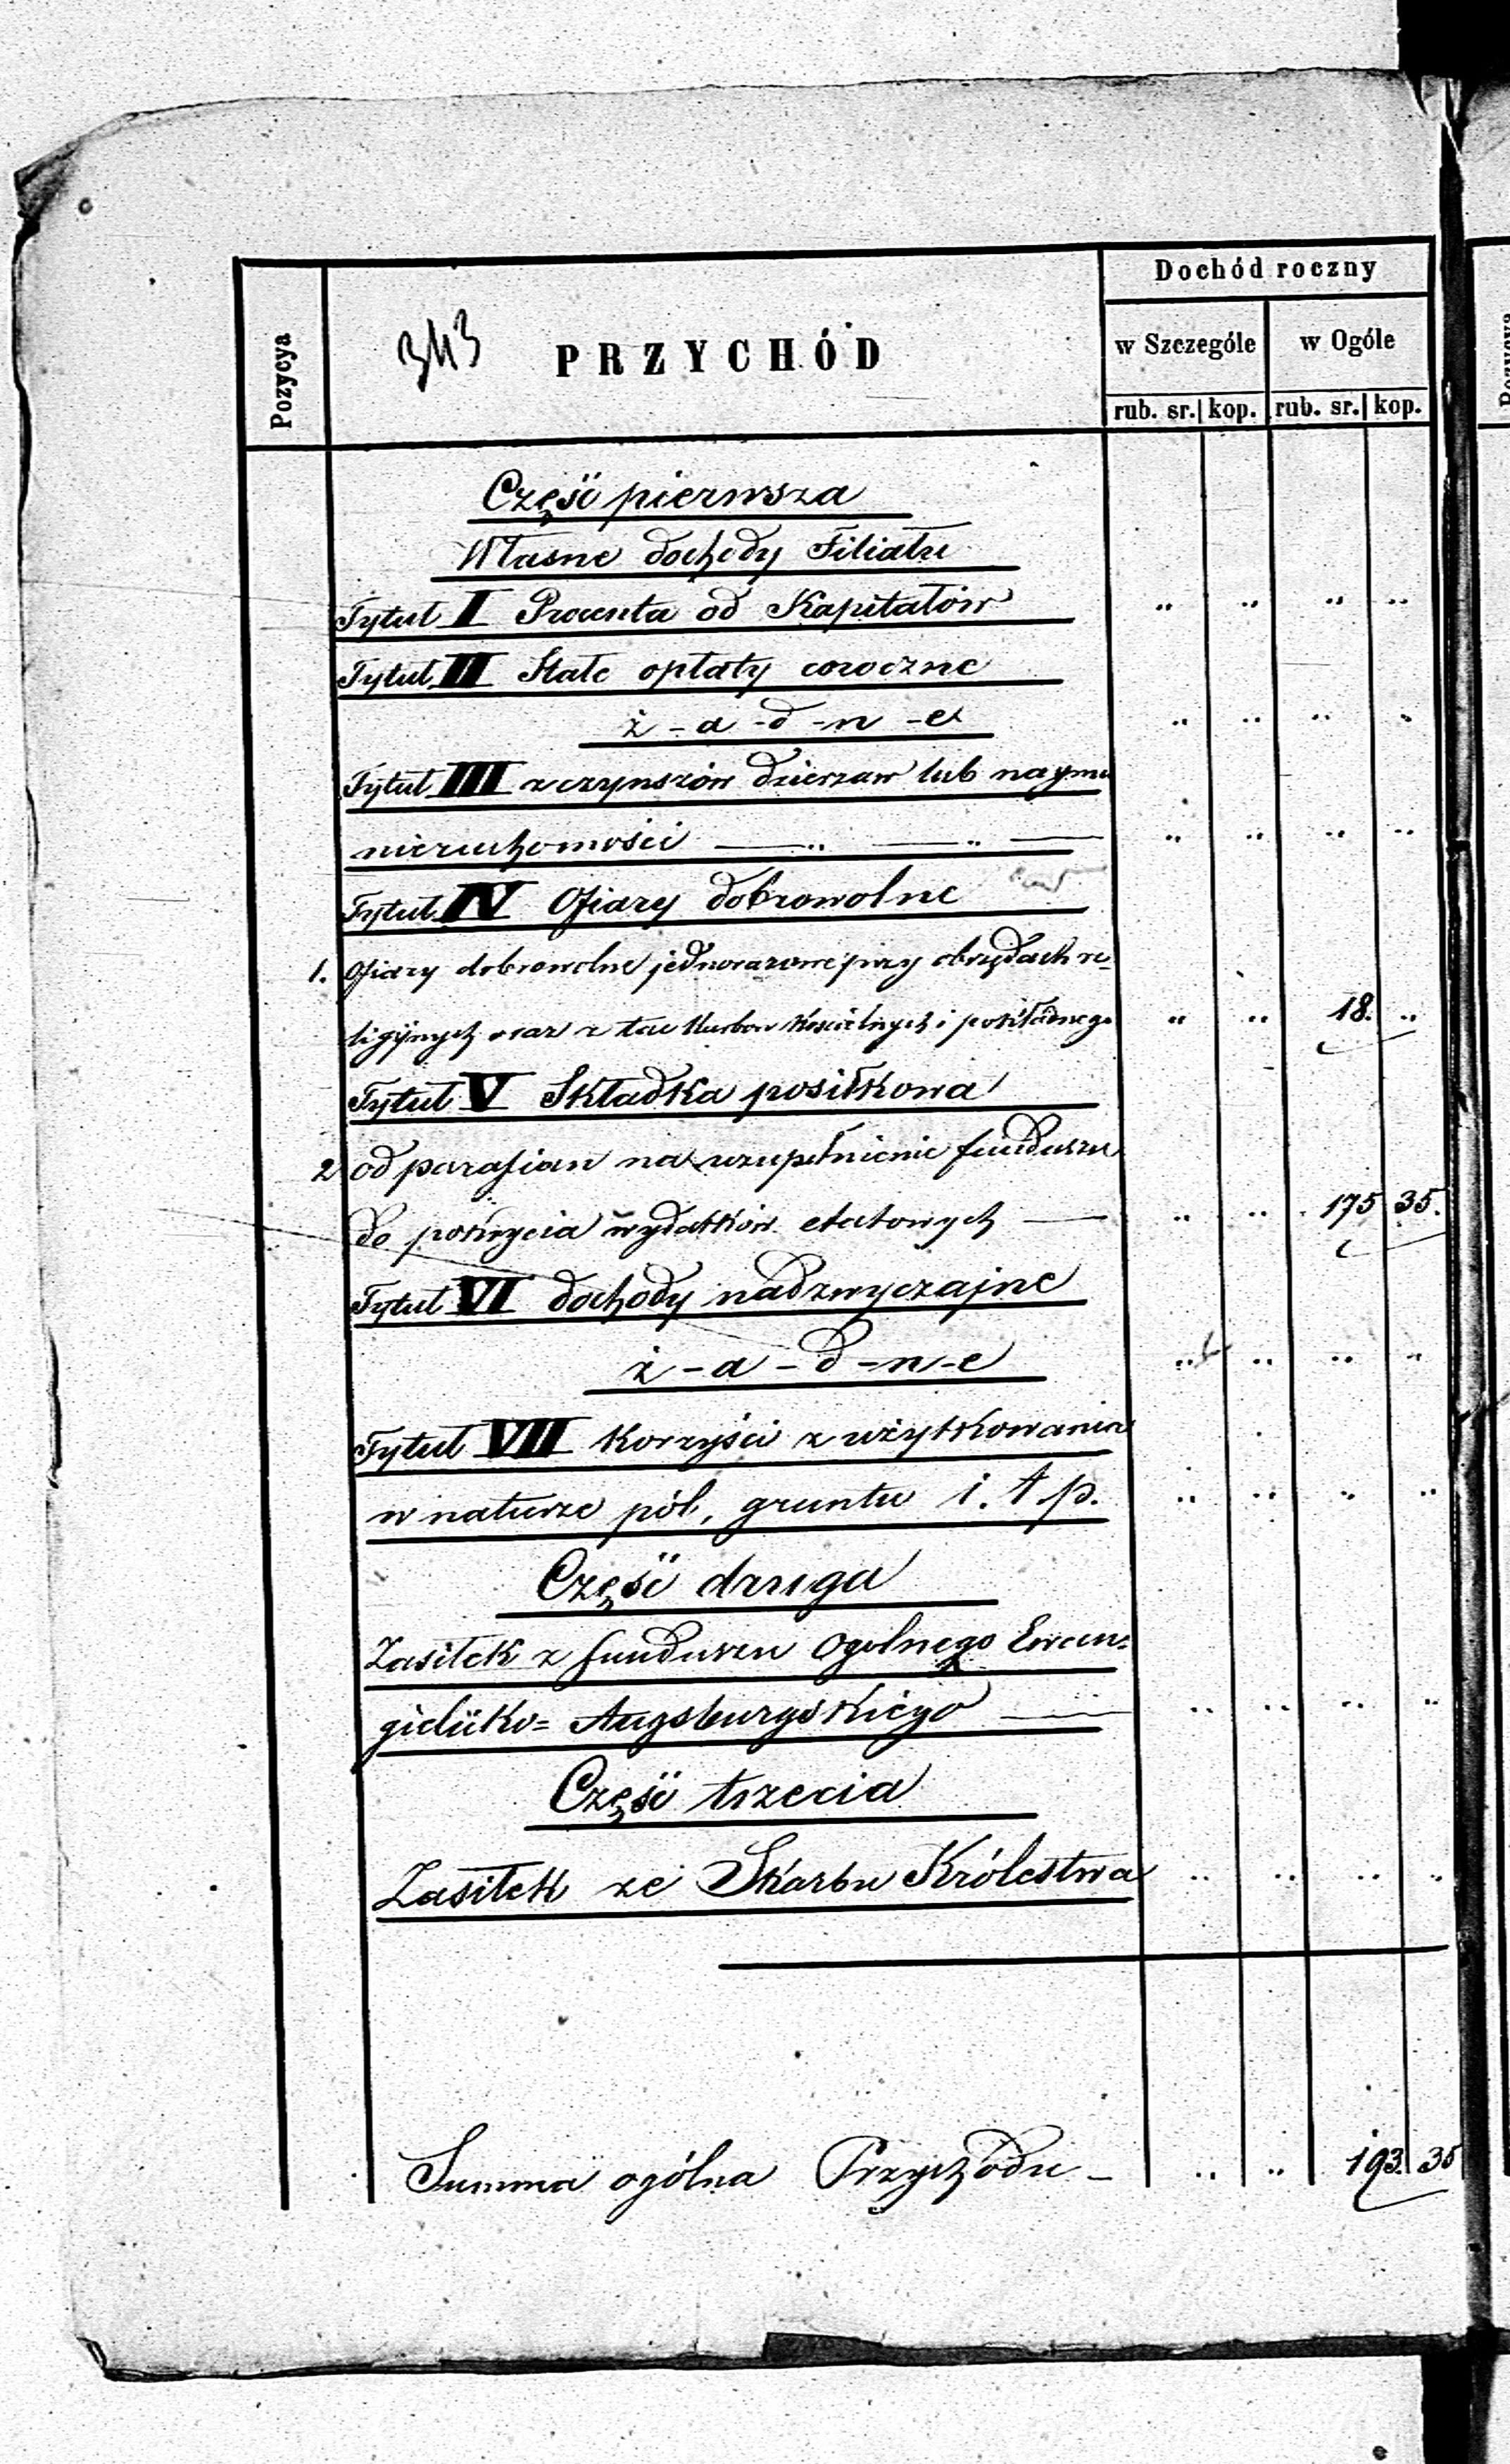 Dochód roczny
Pozycya
343
PRZYCHÓD
w Szczególe
w Ogóle
rub. sr. kop. rub. sr. kop.
Część pierwsza
Własne dochody Filiału
Tytuł I Procenta od Kapitałów " " " "
Tytuł II Stałe opłaty coroczne
ż - a - d - n - e " " " "
Tytuł III z czynszów dzierzaw lub naymu
nieruchomości — " — " — " " " "
Tytuł IV Ofiary dobrowolne
1. Ofiary dobrowolne jednorazowe przy obrzędach re=
ligijnych oraz z Kościelnych i " " 18. "
Tytuł V Składka posiłkowa
2 od parafian na uzupełnienie funduszu
do pokrycia wydatków etatowych — " " 175 35.
Tytuł VI dochody nadzwyczajne
ż - a - d - n - e " " " "
Tytuł VII Korzyści z użytkowania
w naturze pól, gruntu i. t p. " " " "
Część druga
Zasiłek z funduszu Ogolnego Ewan=
gielicko= Augsburgskiego — " " " "
Część trzecia
Zasiłek ze Skarbu Królestwa " " " "
Summa ogólna Przychodu - " " 193. 35